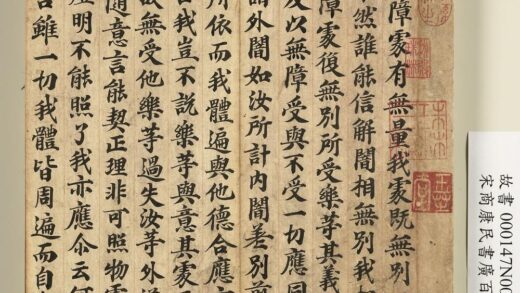 障處有無量我處既無別
然誰能信解闇相無別我
障處復無別所受樂等其義
及以無障受與不受一切應同
外闇如汝所計內闇差別前
所依而我體遍與他德合應
我豈不說樂等與意其處
欲無受他樂等過失汝等外
隨意言能契正理非可照物
明不能照了我亦應尒云何
雖一切我體皆周遍而自
故書 000147N00
宋商康民書廣百